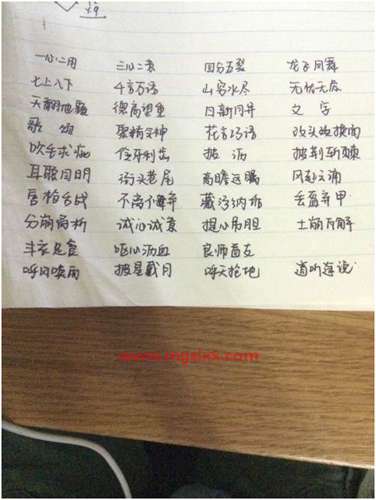 一心二用 三心二意 四分五裂 龙飞凤舞
七上八下 千言万语 山穷水尽 无忧无虑
天翻地覆 德高望重 日新月异 文 字
歌 颂 聚精会神 花言巧语 改头换面
吹毛求疵 伶牙利齿 披 沥 披荆斩棘
耳聪目明 街头巷尾 高瞻远瞩 风起云涌
唇枪舌战 不离不弃 藏污纳垢 丢盔弃甲
分崩离析 诚心诚意 提心吊胆 土崩瓦解
丰衣足食 呕心沥血 良师益友
呼风唤雨 披星戴月 呼天抢地 道听途说
www.mgsixx.com